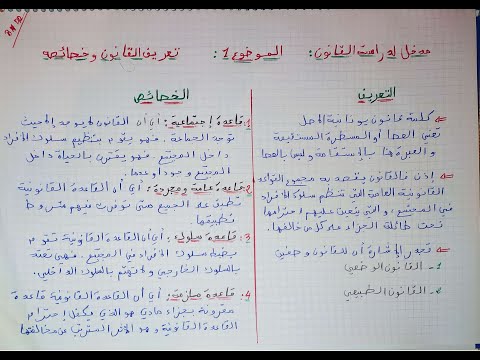 مدخل لدراسة القانون: الموضوع 1: تعريف القانون وخصائصه
التعريف
كلمة قانون يونانية الأصل
تعني العصا أو المسطرة المستقيمة
والعبرة هنا بالإستقامة وليس بالعصا
إذن فالقانون يقصد به مجموع القواعد
القانونية العامة التي تنظم سلوك الأفراد
في المجتمع، والتي يتعين عليهم احترامها
تحت طائلة الجزاء عند كل من خالفها.
تجدر الإشارة أن للقانون وضعين
1- القانون الوضعي
2- القانون الطبيعي
الخصائص
1. قاعدة اجتماعية: أي أن القانون لا يوجد إلا حيث
توجد الجماعة. فهو يقوم بتنظيم سلوك الأفراد
داخل المجتمع. فهو يقترن بالحياة داخل
المجتمع وجودا وعدما.
2. قاعدة عامة ومجردة: أي أن القاعدة القانونية
تطبق على الجميع متى توفرت فيهم شروط
تطبيقها.
3. قاعدة سلوك: أي أن القاعدة القانونية تقوم
بضبط سلوك الأفراد في المجتمع. فهي تعتد
بالسلوك الخارجي ولا تهتم بالسلوك الداخلي.
4. قاعدة ملزمة: أي أن القاعدة القانونية قاعدة
مقرونة بجزاء مادي هو الذي يكفل إحترام
القاعدة القانونية وهو الأثر المترتب عن مخالفتها